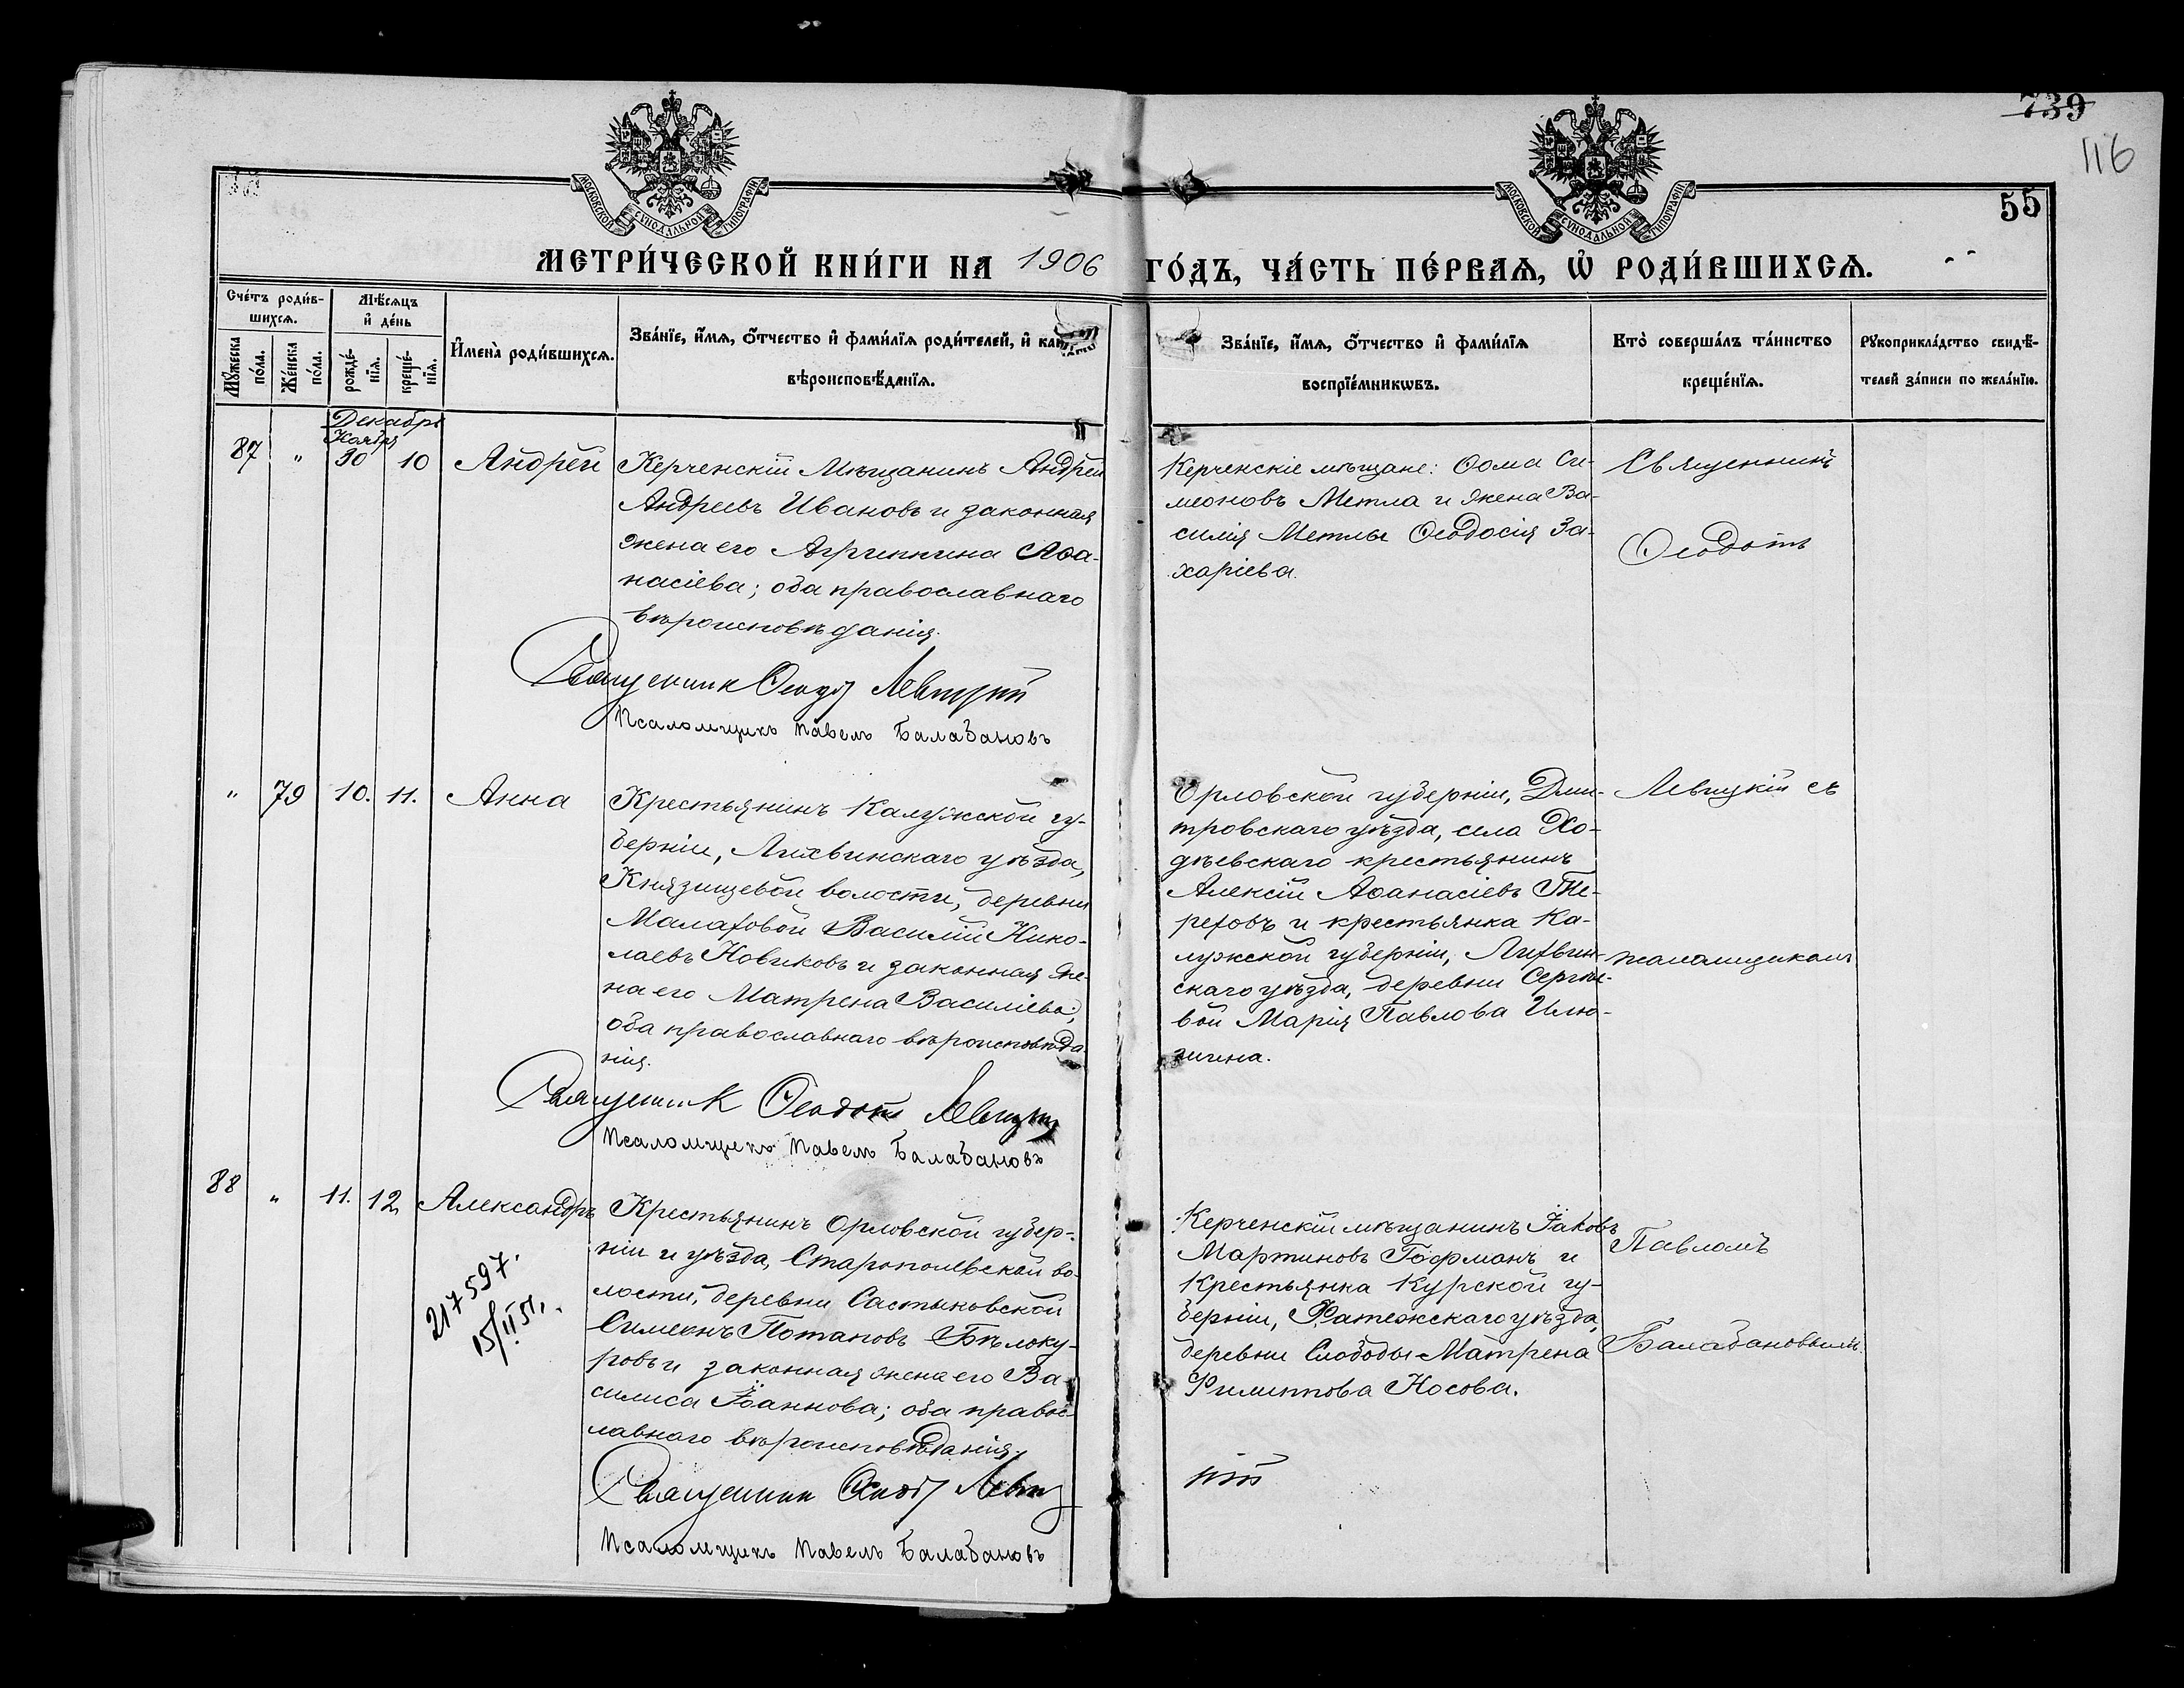 739
116
55
МОСКОВСКОЙ СУНОДАЛЬНОЙ ТИПОГРАФІИ
МОСКОВСКОЙ СУНОДАЛЬНОЙ ТИПОГРАФІИ
МЕТРИ́ЧЕСКОЙ КНИ́ГИ НА 1906 ГО́ДЪ, ЧА́СТЬ ПЕ́РВАѦ, Ѽ РОДИ́ВШИХСѦ.
Сче́тъ роди́в-
шихсѧ.
Мꙋ́жеска по́ла.
Же́нска по́ла.
Мѣ́сѧцъ
и҆ де́нь
рожде́-
нїѧ.
креще́-
нїѧ.
И҆мена̀ роди́вшихсѧ.
Зва́нїе, и҆́мѧ, ѻ҆́тчество и҆ фами́лїѧ роди́телей, и҆
вѣроисповѣ́данїѧ.
Зва́нїе, и҆́мѧ, ѻ҆́тчество и҆ фами́лїѧ
воспрїе́мникѡвъ.
Кто̀ соверша́лъ та́инство
креще́нїѧ.
Рꙋкоприкла́дство свидѣ́-
телей за́писи по жела́нїю.
Декабрь
Ноября
87 " 30 10 Андрей
Керченскій Мѣщанинъ Андрей
Андреевъ Ивановъ и законная
жена его Агриппина Аѳа-
насіева; оба православнаго
вѣроисповѣданія.
Священникъ Ѳеодотъ Левицкій
Псаломщикъ Павелъ Балабановъ
Керченскіе мѣщане: Ѳома Си-
меоновъ Метла и жена Ва-
силія Метлы Ѳеодосія За-
харіева.
Священникъ
Ѳеодотъ
" 79 10. 11. Анна
Крестьянинъ Калужской гу-
берніи, Лихвинскаго уѣзда,
Князищевой волости, деревни
Малаховой Василій Нико-
лаевъ Новиковъ и законная же-
на его Матрена Василіева;
оба православнаго вѣроисповѣда-
нія.
Священникъ Ѳеодотъ Левицкій
Псаломщикъ Павелъ Балабановъ
Орловской губерніи, Дми-
тровскаго уѣзда, села Хо-
дѣевскаго крестьянинъ
Алексій Аѳанасіевъ Те-
реховъ и крестьянка Ка-
лужской губерніи, Лихвин-
скаго уѣзда, деревни Сергѣе-
вой Марія Павлова Илю-
шина.
Левицкій съ
псаломщикомъ
88 " 11. 12 Александръ
217597.
15/II 51.
Крестьянинъ Орловской губер-
ніи и уѣзда, Старопольской во-
лости, деревни Састыковской
Симеонъ Потаповъ Бѣлоку-
ровъ и законная жена его Ва-
силиса Іоаннова; оба правос-
лавнаго вѣроисповѣданія.
Священникъ Ѳеодотъ Левиц
кій
Псаломщикъ Павелъ Балабановъ
Керченскій мѣщанинъ Іаковъ
Мартиновъ Гофманъ и
крестьянка Курской гу-
берніи, Фатежскаго уѣзда,
деревни Слободы Матрена
Филиппова Носова.
Павломъ
Балабановымъ.